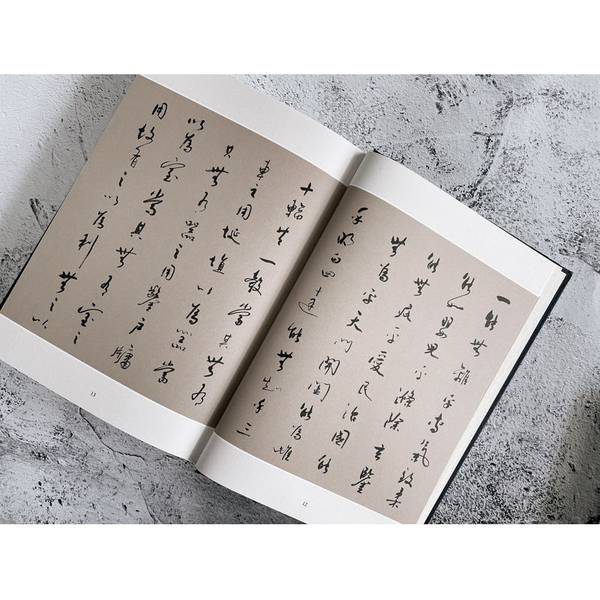 一能無離乎專氣致柔
能如嬰兒乎滌除玄鑒
能無疵乎愛民治國能
無為乎天門開闔能為雌
乎明白四達能無知乎三
12
十輻共一轂當其無有
車之用埏埴以為器當
其無有器之用鑿戶牖
以為室當其無有室之
用故有之以為利無之以
13